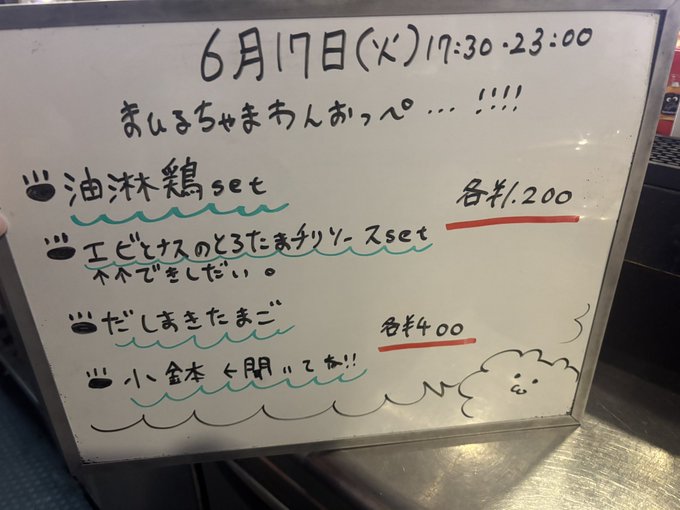 6月17日(火)17:30.23:00
まひるちゃまわんおっぺ…!!!!
油淋鶏set
各¥1.200
エビとナスのとろたまチリソースset
↑↑できしだい。
だしまきたまご
各¥400
小鉢←聞いてね!!